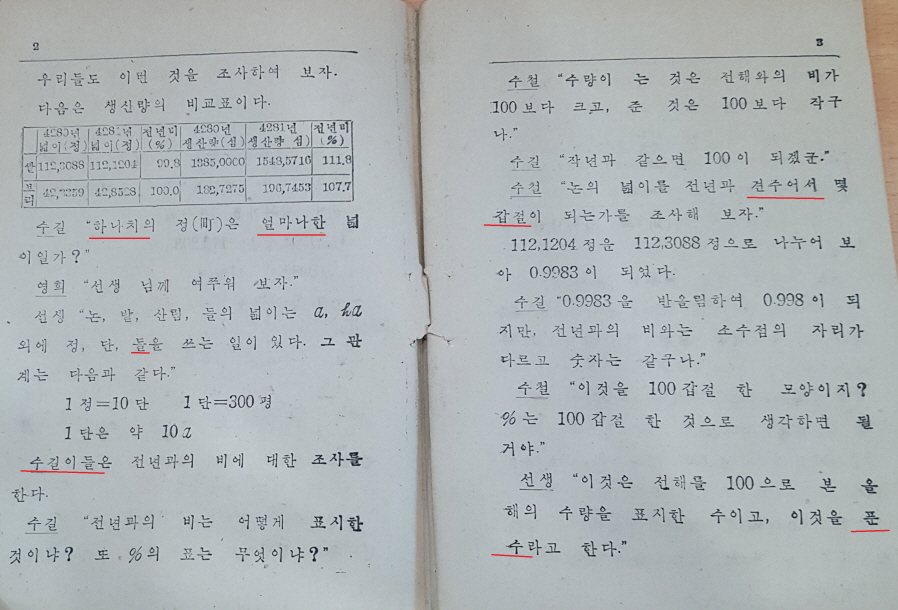 2
우리들도 이런 것을 조사하여 보자.
다음은 생산량의 비교표이다.
4280년 넓이(정) 4281년 넓이(정) 전년비 (%) 4280년 생산량(섬) 4281년 생산량(섬) 전년비 (%)
쌀 112,3088 112,1204 99.8 1385,0000 1548,5716 111.8
보리 100.0 182,7275 196,7453 107.7
수길 “하나치의 정(町)은 얼마나한 넓
이일가?”
영희 “선생 님께 여쭈워 보자.”
선생 “논, 밭, 산림, 들의 넓이는 a, ha
외에 정, 단, 들을 쓰는 일이 있다. 그 관
계는 다음과 같다.”
1 정=10 단 1 단=300 평
1 단은 약 10 a
수길이들은 전년과의 비에 대한 조사를
한다.
수길 “전년과의 비는 어떻게 표시한
것이냐? 또 %의 표는 무엇이냐?”
3
수철 “수량이 는 것은 전해와의 비가
100 보다 크고, 준 것은 100 보다 작구
나.”
수길 “작년과 같으면 100 이 되겠군.”
수철 “논의 넓이를 전년과 견주어서 몇
갑절이 되는가를 조사해 보자.”
112,1204 정을 112,3088 정으로 나누어 보
아 0.9983 이 되었다.
수길 “0.9983 을 반올림하여 0.998 이 되
지만, 전년과의 비와는 소수점의 자리가
다르고 숫자는 같구나.”
수철 “이것을 100 갑절 한 모양이지?
%는 100 갑절 한 것으로 생각하면 될
거야.”
선생 “이것은 전해를 100 으로 본 올
해의 수량을 표시한 수이고, 이것을 푼
수라고 한다.”